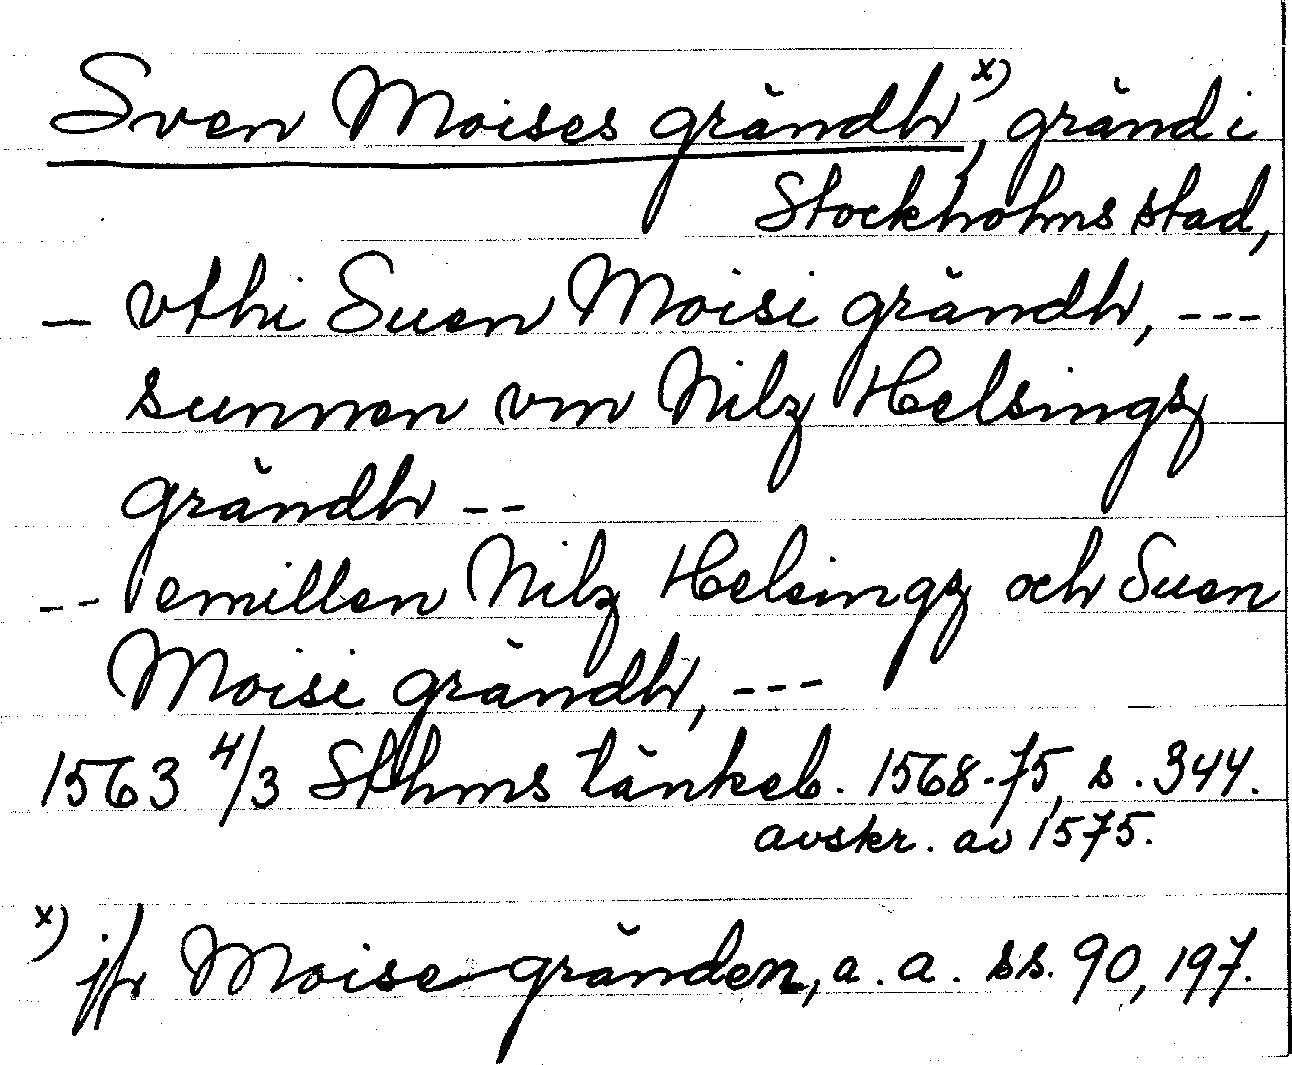 Sven Moises grändh x), gränd i
Stockholms stad,
– vthi Suen Moisi grändh, ---
sunnen vm Nilz Helsingz
grändh --
-- emillen Nilz Helsingz och Suen
Moisi grändh, ---
1563 4/3 Sthms tänkeb. 1568-75, s. 344.
avskr. av 1575.
x) jfr Moise gränden, a. a. ss. 90, 197.